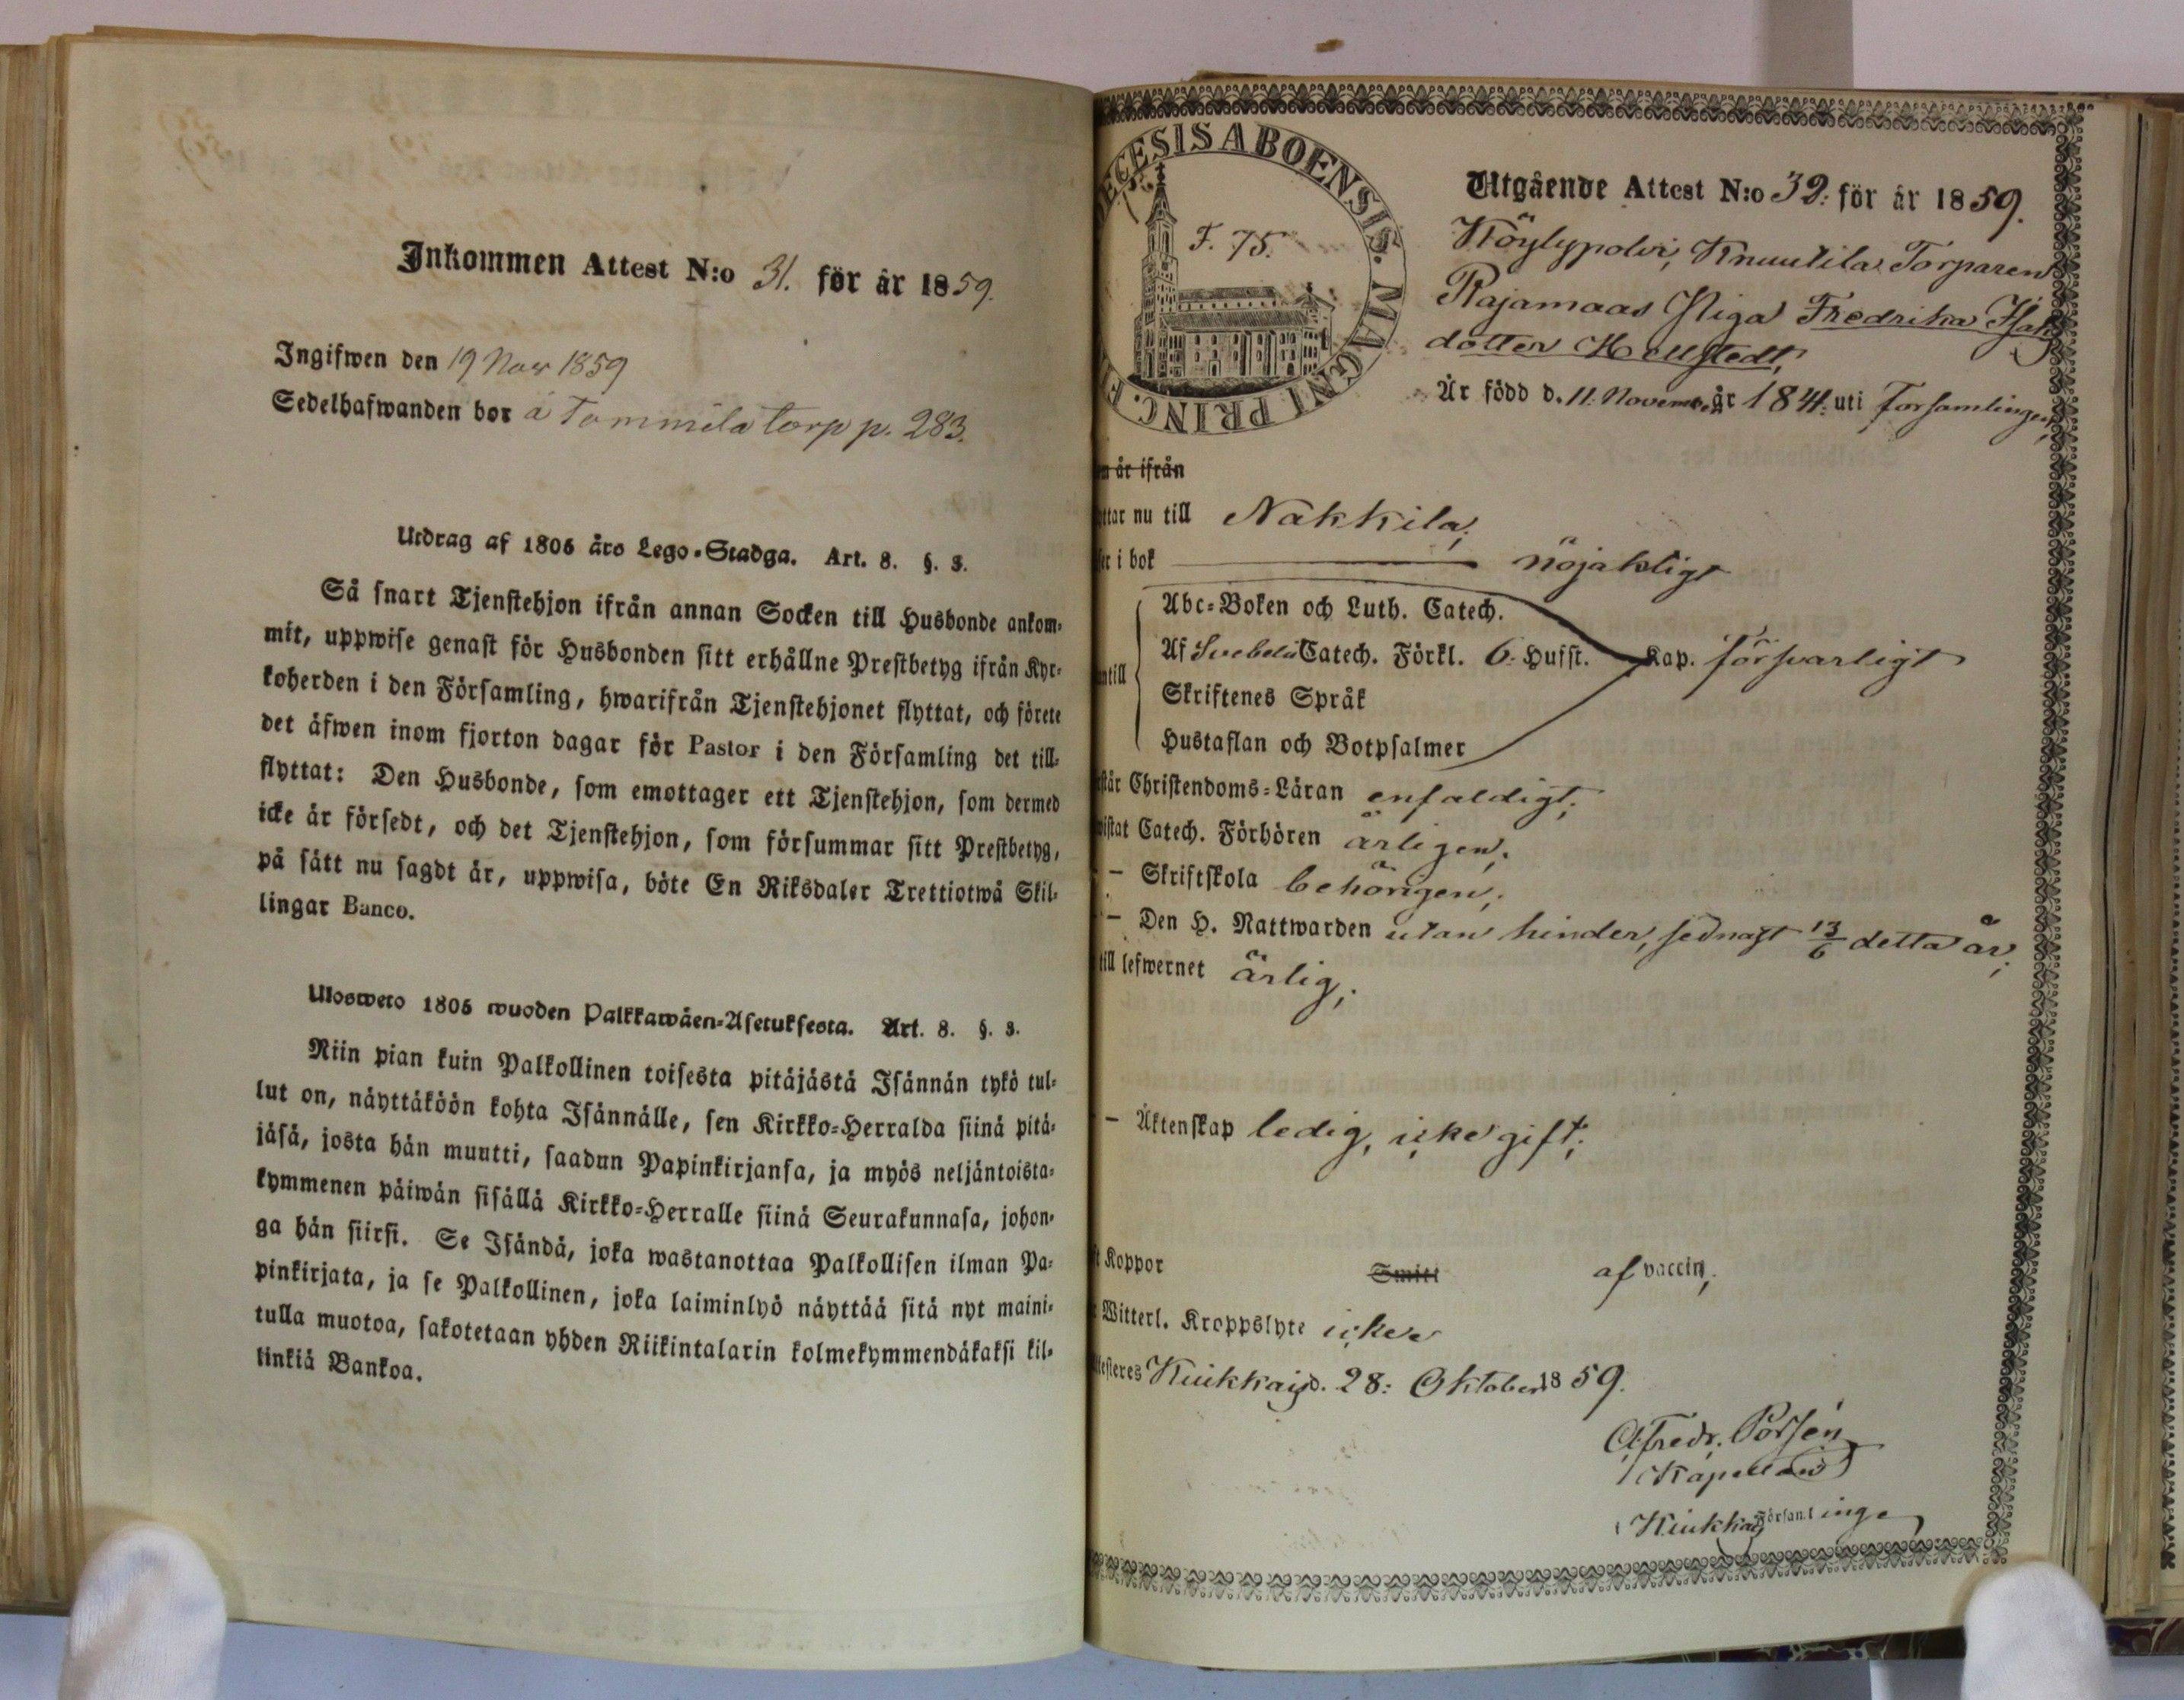 Inkommen Attest N:o 31. för år 1859.
Ingifwen den 19 Nov 1859
Sedelhafwanden bor å Tommila torp p. 283.
Utdrag af 1805 års Lego-Stadga. Art. 8. §. 3.
Så snart Tjenstehjon ifrån annan Socken till Husbonde ankom-
mit, uppwise genast för Husbonden sitt erhållne Prestbetyg ifrån Kyr-
koherden i den Församling, hwarifrån Tjenstehjonet flyttat, och förete
det äfwen inom fjorton dagar för Pastor i den Församling det till-
flyttat: Den Husbonde, som emottager ett Tjenstehjon, som dermed
icke är försedt, och det Tjenstehjon, som försummar sitt Prestbetyg,
på sätt nu sagdt är, uppwisa, böte En Riksdaler Trettiotwå Skil-
lingar Banco.
Ulosweto 1805 wuoden Palkkawäen-Asetuksesta. Art. 8. §. 3.
Niin pian kuin Palkollinen toisesta pitäjästä Isännän tykö tul-
lut on, näyttäköön kohta Isännälle, sen Kirkko-Herralda siinä pitä-
jäsä, josta hän muutti, saadun Papinkirjansa, ja myös neljäntoista-
kymmenen päiwän sisällä Kirkko-Herralle siinä Seurakunnasa, johon-
ga hän siirsi. Se Isändä, joka wastanottaa Palkollisen ilman Pa-
pinkirjata, ja se Palkollinen, joka laiminlyö näyttää sitä nyt maini-
tulla muotoa, sakotetaan yhden Riikintalarin kolmekymmendäkaksi kil-
linkiä Bankoa.
ECESIS ABOENSIS. MAGNI PRINC. FI
F. 75.
Utgående Attest N:o 32: för år 1859.
Köylypolvi, Knuutila Torparen
Rajamaas Piga Fredrika Isaks
dotter Hellstedt,
Är född d. 11. November år 1841. uti Församlingen,
n är ifrån
ttar nu till Nakkila;
ser i bok nöjaktigt
Abc-Boken och Luth. Catech.
Af Svebelii Catech. Förkl. 6: Hufst. Kap. försvarligt
ntill
Skriftenes Språk
Hustaflan och Botpsalmer
står Christendoms-Läran enfaldigt;
wistat Catech. Förhören årligen;
– Skriftskola behörigen;
– Den H. Nattwarden utan hinder, sednast 13/6 detta år;
till lefwernet ärlig;
– Äktenskap ledig, icke gift;
t Koppor Smitt af vaccin;
Witterl. Kroppslyte icke
testeres Kiukkais d. 28: Oktober 1859.
Fredr. Polsén
Kapellan
i Kiukkais Församlinge